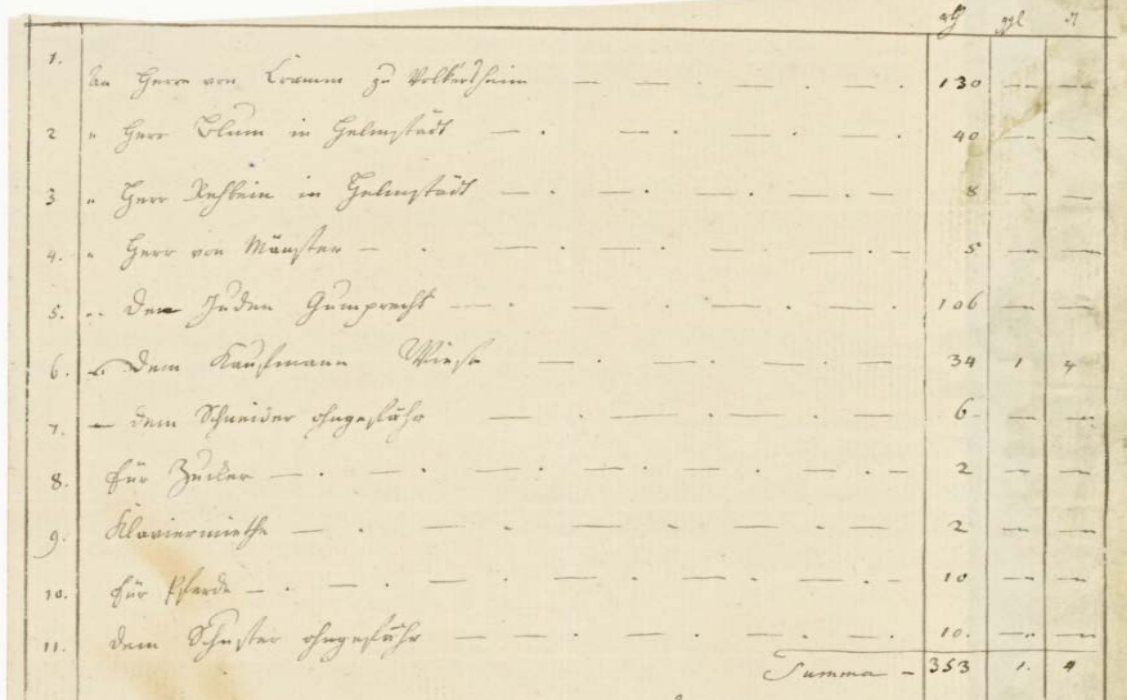 rthl ggl ₰
1. An Herrn von Cramm zu Volkersheim — — . — . — . 130 — —
2 " Herr Blum in Helmstädt — . — . — . — . 40 — —
3 " Herr Rehbein in Helmstädt — . — . — . — 8 — —
4. " Herr von Münster — . — . — . — . — 5 — —
5. " Dem Juden Gumprecht — . — . — . — 106 — —
6. " Dem Kaufmann Wiese — . — . — . — 34 1 4
7. — dem Schneider ohngefähr — . — . — . — 6 — —
8. für Zucker — . — . — . — . — . — 2 — —
9. Klaviermiethe — . — . — . — . — 2 — —
10. für Pferde — . — . — . — . — . — 10 — —
11. dem Schuster ohngefähr — — . — . — . — 10. — —
Summa — 353 1. 4